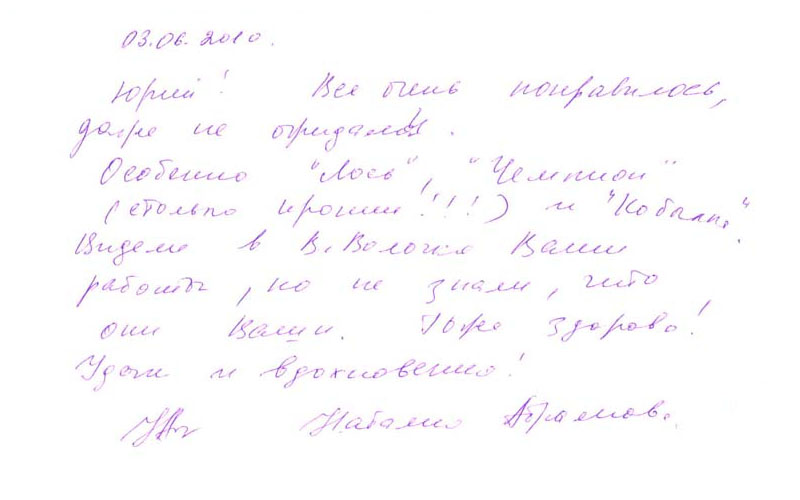 03.06.2010.
Юрий! Все очень понравилось,
даже не ожидала.
Особенно "Лось", "Чемпион"
(столько иронии!!!) и "Кобылка".
Видели в В. Волочке Ваши
работы, но не знали, что
они Ваши. Тоже здорово!
Удачи и вдохновения!
Наталия Абрамова.